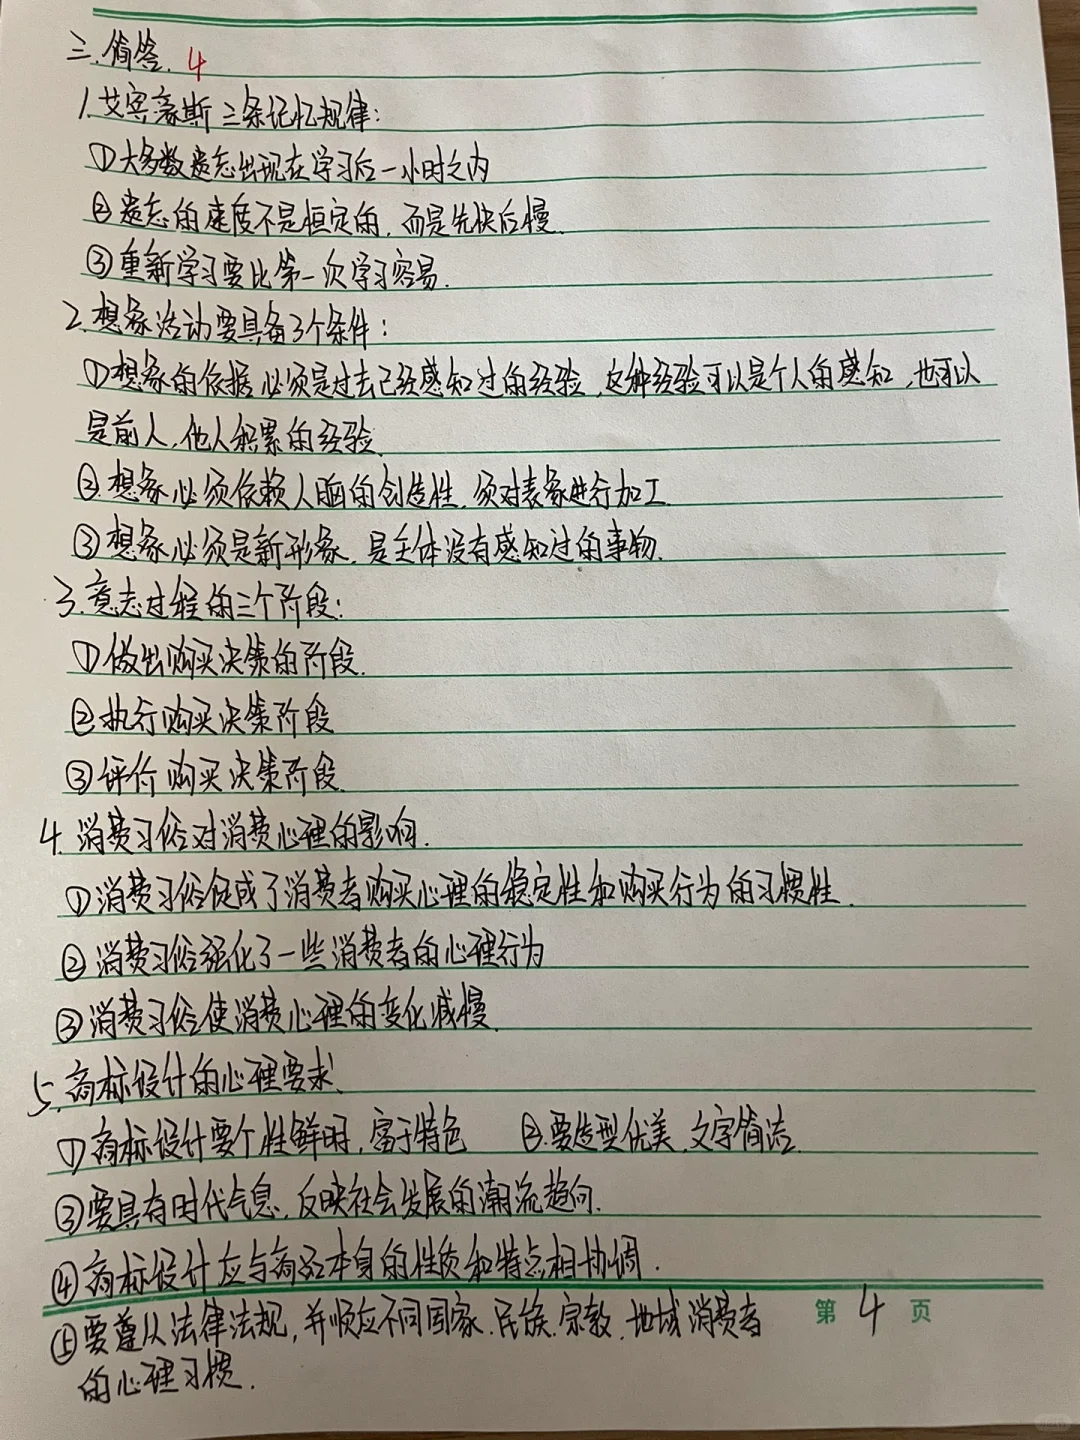 三.简答. 4
1.艾宾豪斯三条记忆规律:
①大多数遗忘出现在学习后一小时之内
②遗忘的速度不是恒定的,而是先快后慢.
③重新学习要比第一次学习容易.
2.想象活动要具备3个条件:
①想象的依据必须是过去已经感知过的经验,这种经验可以是个人的感知,也可以
是前人,他人积累的经验.
②想象必须依赖人脑的创造性,须对表象进行加工.
③想象必须是新形象,是主体没有感知过的事物.
3.意志过程的三个阶段:
①做出购买决策的阶段.
②执行购买决策阶段
③评价购买决策阶段.
4.消费习俗对消费心理的影响.
①消费习俗促成了消费者购买心理的稳定性和购买行为的习惯性.
②消费习俗强化了一些消费者的心理行为
③消费习俗使消费心理的变化减慢.
5.商标设计的心理要求.
①商标设计要个性鲜明,富于特色 ②.要造型优美,文字简洁.
③要具有时代气息,反映社会发展的潮流趋向.
④商标设计应与商品本身的性质和特点相协调.
⑤要遵从法律法规,并顺应不同国家.民族.宗教.地域消费者
的心理习惯.
第 4 页